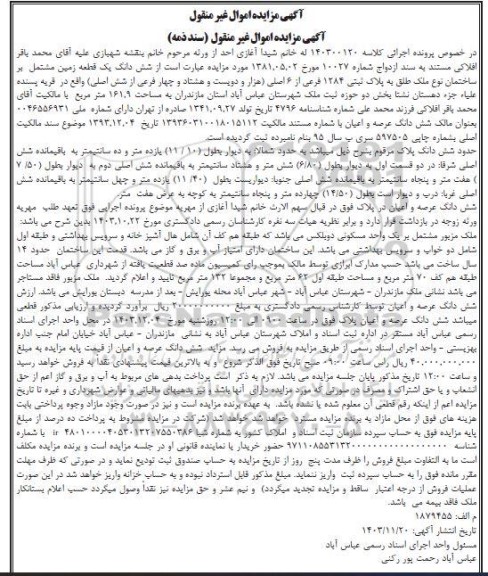 آگهی مزایده اموال غیر منقول
آگهی مزایده اموال غیر منقول (سند ذمه)
در خصوص پرونده اجرائی کلاسه ۱۴۰۳۰۰۱۲۰ له خانم شیدا آغازی احد از ورثه مرحوم خانم بنفشه شهبازی علیه آقای محمد باقر
افلاکی مستند به سند ازدواج شماره ۱۰۰۲۷ مورخ ۱۳۸۱,۰۵,۰۲ مورد مزایده عبارت است از شش دانگ یک قطعه زمین مشتمل بر
ساختمان نوع ملک طلق به پلاک ثبتی ۱۲۸۴ فرعی از ۶ اصلی (هزار و دویست و هشتاد و چهار فرعی از شش اصلی) واقع در قریه پسنده
علیاء جزء دهستان نشتا بخش دو حوزه ثبت ملک شهرستان عباس آباد استان مازندران به مساحت ۱۶۱,۹ متر مربع با مالکیت آقای
محمد باقر افلاکی فرزند محمد علی شماره شناسنامه ۴۷۹۶ تاریخ تولد ۱۳۴۱,۰۹,۲۷ صادره از تهران دارای شماره ملی ۰۰۴۶۵۵۶۹۳۱
بعنوان مالک شش دانگ عرصه و اعیان با شماره مستند مالکیت ۱۳۹۳۶۰۳۱۰۰۱۸۰۱۵۱۱۲ تاریخ ۱۳۹۳,۱۲,۰۴ موضوع سند مالکیت
اصلی بشماره چاپی ۵۹۷۵۰۵ سری ب سال ۹۵ بنام نامبرده ثبت گردیده است.
حدود شش دانگ پلاک مرقوم بشرح ذیل میباشد، حدود شمالا: به دیوار بطول (۱۰ / ۱۱) یازده متر و ده سانتیمتر به باقیمانده شش
اصلی شرقا: در دو قسمت اول به دیوار بطول (۶/۸۰) شش متر و هشتاد سانتیمتر به باقیمانده شش اصلی دوم به دیوار بطول (۵۰/ ۷
) هفت متر و پنجاه سانتیمتر به باقیمانده شش اصلی جنوبا: دیواریست بطول (۴۰/ ۱۱) یازده متر و چهل سانتیمتر به باقیمانده شش
اصلی غربا: درب و دیوار است بطول (۱۴/۵۰) چهارده متر و پنجاه سانتیمتر به کوچه به عرض هفت متر.
شش دانگ عرصه و اعیان پلاک فوق در قبال سهم الارث خانم شیدا آغازی از مهریه موضوع پرونده اجرایی فوق تعهد طلب مهریه
ورثه زوجه در بازداشت قرار دارد و برابر نظریه هیات سه نفره کارشناسان رسمی دادگستری مورخ ۱۴۰۳,۱۰,۲۲ بدین شرح می باشد:
ملک مزبور مشتمل بر یک واحد مسکونی دوبلکس می باشد که طبقه هم کف آن شامل هال آشپز خانه و سرویس بهداشتی و طبقه اول
شامل دو خواب و سرویس بهداشتی می باشد. این ساختمان دارای امتیاز آب و برق و گاز می باشد. قدمت این ساختمان حدود ۱۴
سال ساخت می باشد حسب مدارک ابرازی توسط مالک بموجب رای کمیسیون ماده صد قطعیت یافته از شهرداری عباس آباد مساحت
طبقه هم کف ۷۰ متر مربع و مساحت طبقه اول ۶۲ متر مربع و مجموعا ۱۳۲ متر مربع تایید و اعلام گردید. ملک مزبور فاقد مستاجر
می باشد نشانی ملک مازندران - شهرستان عباس آباد - شهر عباس آباد محله پورایش - بعد از مدرسه دبستان پورایش می باشد. ارزش
شش دانگ عرصه و اعیان توسط کارشناس رسمی دادگستری به مبلغ ریال برآورد گردیده و ارزیابی مذکور قطعی
میباشد شش دانگ عرصه و اعیان پلاک فوق در ساعت ۰۹:۰۰ الی ۱۲:۰۰ روزشنبه مورخ ۱۴۰۳,۱۲,۰۴ در محل واحد اجرای اسناد
رسمی عباس آباد مستقر در اداره ثبت اسناد و املاک شهرستان عباس آباد به نشانی مازندران - عباس آباد خیابان امام جنب اداره
بهزیستی - واحد اجرای اسناد رسمی از طریق مزایده به فروش می رسد مزاید شش دانگ عرصه و اعیان از قیمت پایه مزایده به مبلغ
ریال راس ساعت ۰۹:۰۰ صبح تاریخ فوق الذکر شروع و به بالاترین قیمت پیشنهادی نقدا به فروش خواهد رسید
و ساعت ۱۲:۰۰ تاریخ مذکور پایان جلسه مزایده می باشد. لازم به ذکر است پرداخت بدهی های مربوط به آب و برق و گاز اعم از حق
انشعاب و یا حق اشتراک و مصرف در صورتی که مورد مزایده دارای آنها باشد و نیز بدهیهای مالیاتی و عوارض شهرداری و غیره تا تاریخ
مزایده اعم از اینکه رقم قطعی آن معلوم شده یا نشده باشد به عهده برنده مزایده است و نیز در صورت وجود مازاد وجوه پرداختی بابت
هزینه های فوق از محل مازاد به برنده مزایده مسترد خواهد شد. شرکت در مزایده منوط به پرداخت ده درصد از مبلغ
پایه مزایده فوق به حساب سپرده سازمان ثبت اسناد و املاک کشور به شماره شبا و با شماره
شناسه حضور خریدار یا نماینده قانونی او در جلسه مزایده است و برنده مزایده مکلف
است ما به التفاوت مبلغ فروش را ظرف مدت پنج روز از تاریخ مزایده به حساب صندوق ثبت تودیع نماید و در صورتی که ظرف مهلت
مقرر مانده فوق را به حساب سپرده ثبت واریز ننماید. مبلغ مذکور قابل استرداد نبوده و به حساب خزانه واریز خواهد شد در این صورت
عملیات فروش از درجه اعتبار ساقط و مزایده تجدید میگردد) و نیم عشر و حق مزایده نیز نقداً وصول میگردد حسب اعلام بستانکار
ملک فاقد بیمه می باشد.
م الف: ۱۸۷۹۴۵۵
تاریخ انتشار آگهی: ۱۴۰۳/۱۱/۲۰
مسئول واحد اجرای اسناد رسمی عباس آباد
عباس آباد رحمت پور رکنی